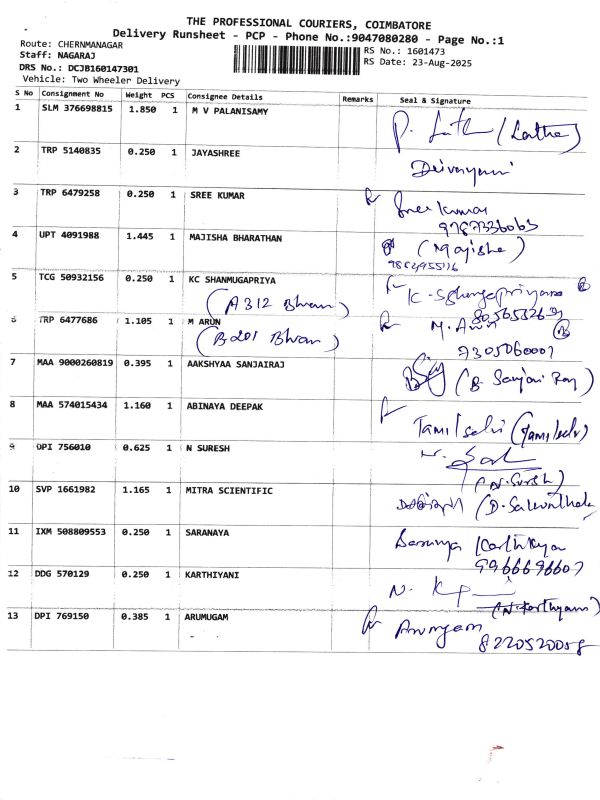 THE PROFESSIONAL COURIERS, COIMBATORE
Delivery Runsheet - PCP - Phone No.:9047080280 - Page No.:1
Route: CHERNMANAGAR
Staff: NAGARAJ
DRS No.: DCJB160147301
Vehicle: Two Wheeler Delivery
RS No.: 1601473
RS Date: 23-Aug-2025
S No Consignment No Weight PCS Consignee Details Remarks Seal & Signature
1 SLM 376698815 1.850 1 M V PALANISAMY
P. (Latha)
2 TRP 5140835 0.250 1 JAYASHREE
Deivayani
3 TRP 6479258 0.250 1 SREE KUMAR
Sree kumar
9787336063
4 UPT 4091988 1.445 1 MAJISHA BHARATHAN
(Majisha)
5 TCG 50932156 0.250 1 KC SHANMUGAPRIYA
(A312 Bhvan)
6 TRP 6477686 1.105 1 M ARUN
M. Arun
(B201 Bhvan)
7305060001
7 MAA 9000260819 0.395 1 AAKSHYAA SANJAIRAJ
8 MAA 574015434 1.160 1 ABINAYA DEEPAK
Tamilselvi
9 DPI 756010 0.625 1 N SURESH
(N. Suresh)
10 SVP 1661982 1.165 1 MITRA SCIENTIFIC
11 IXM 508809553 0.250 1 SARANAYA
12 DDG 570129 0.250 1 KARTHIYANI
(N. Karthyani)
13 DPI 769150 0.385 1 ARUMUGAM
Arumugam
8220520058